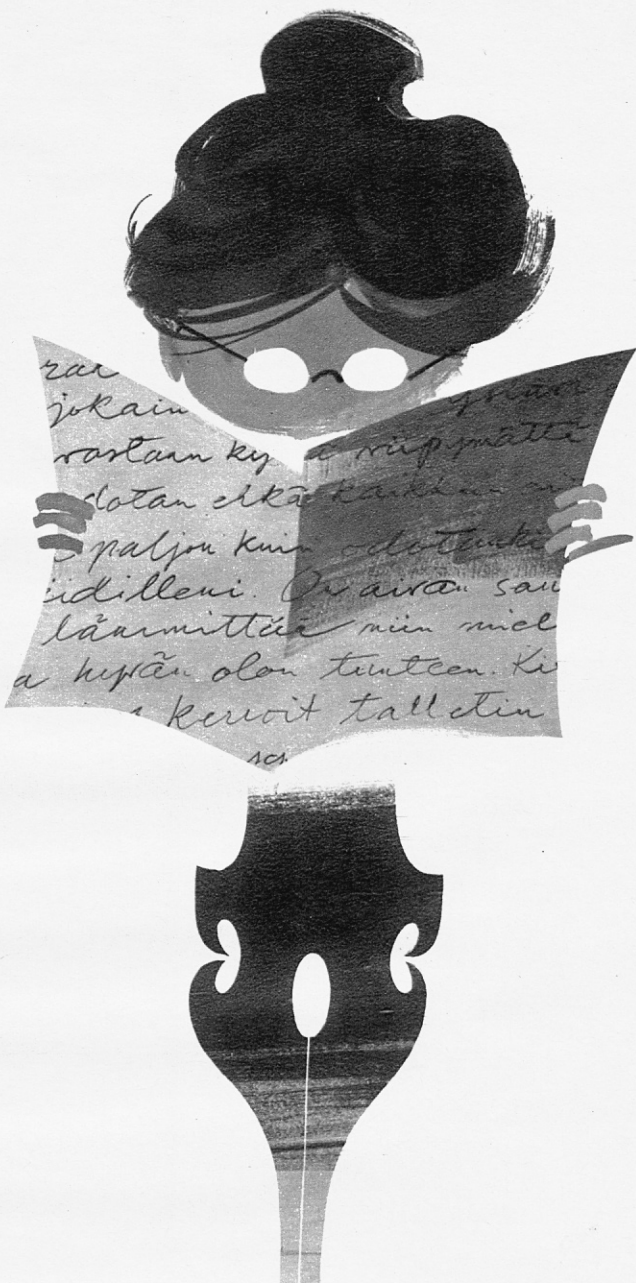 rak
jokain
vastaan ky a viipymättä
dotan ehkä kaikkein
paljon kuin odotinki
iidilleni. On aivan sam
lämmittää niin miel
a hyvän olon tunteen. Ki
kerroit talletin
sa